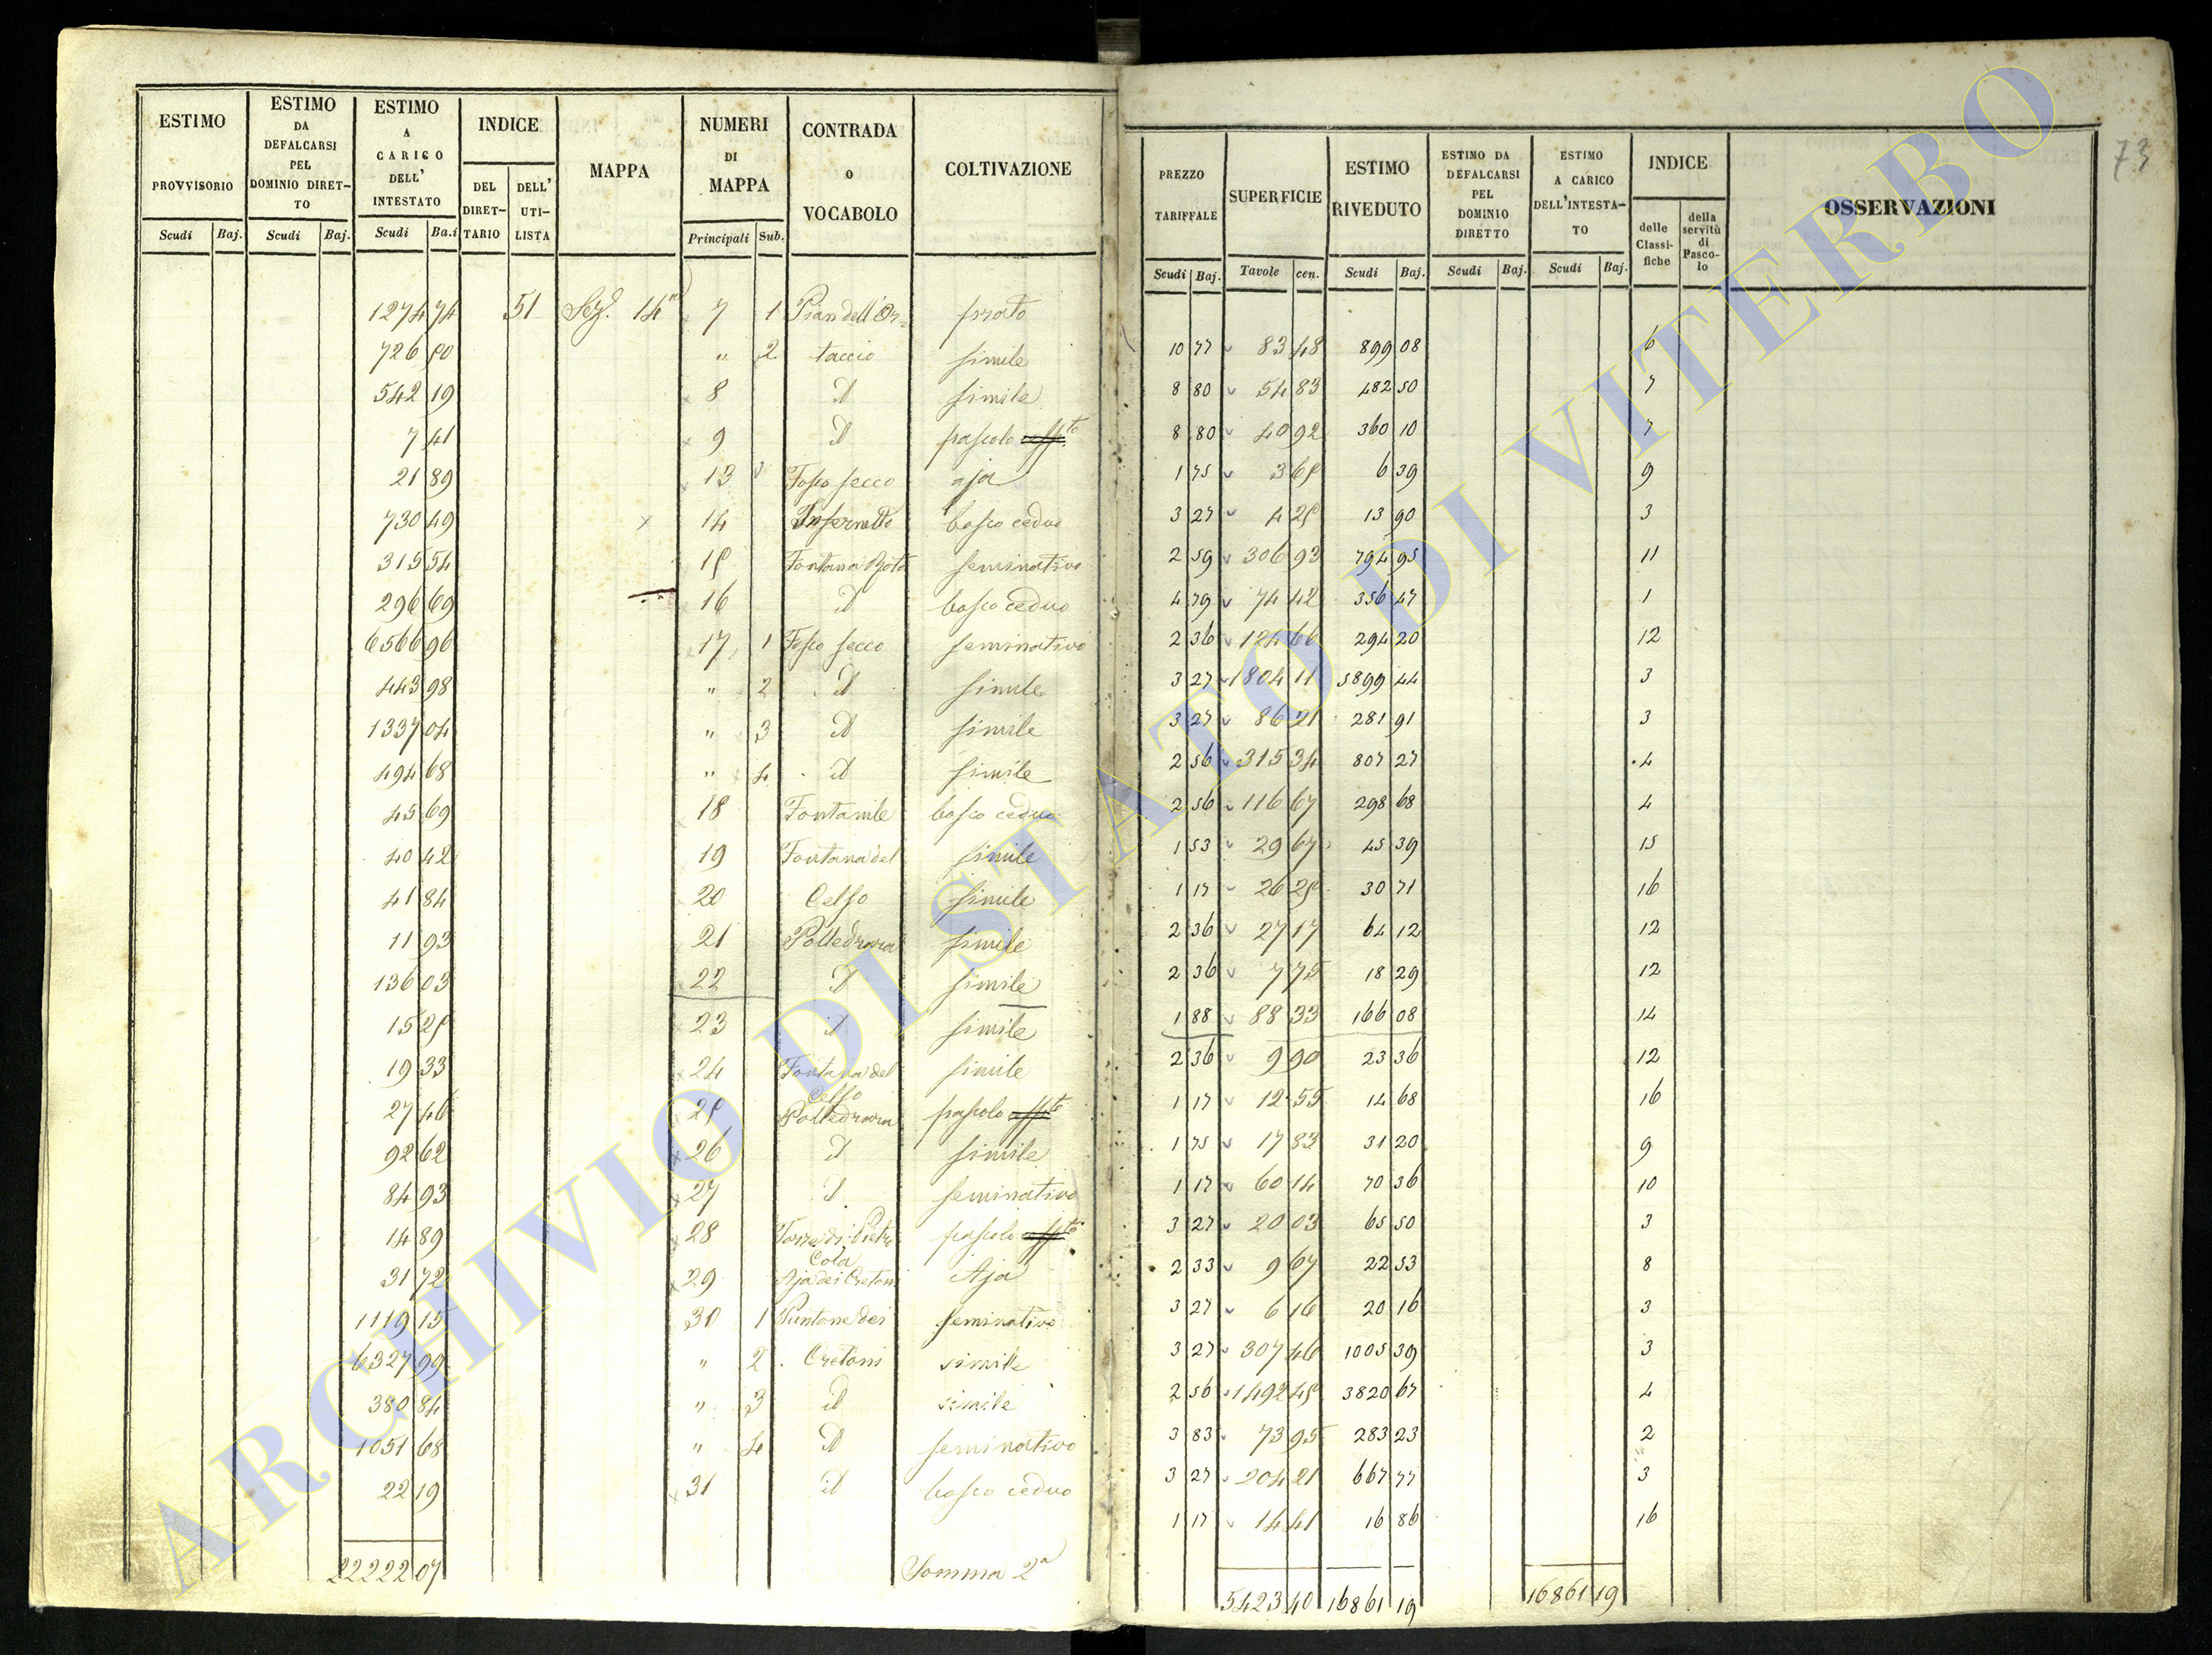 ESTIMO PROVVISORIO Scudi Baj.
ESTIMO DA DEFALCARSI PEL DOMINIO DIRET- TO Scudi Baj.
ESTIMO A CARICO DELL' INTESTATO Scudi Ba.i
INDICE DEL DIRET- TARIO DELL' UTI- LISTA
MAPPA
NUMERI DI MAPPA Principali Sub.
CONTRADA o VOCABOLO
COLTIVAZIONE
1274 74 51 Sez. 14a 7 1 Pian dell'Or= prato
726 50 " 2 taccio simile
542 19 8 d simile
7 41 9 d pascolo
21 89 13 Fosso secco aja
730 49 14 Infernetto bosco ceduo
315 54 15 Fontana seminativo
296 69 16 d bosco ceduo
6566 96 17 1 Fosso secco seminativo
443 98 " 2 d simile
1337 04 " 3 d simile
494 68 " 4 d simile
45 69 18 Fontanile bosco ceduo
40 42 19 Fontana del simile
41 84 20 Celso simile
11 93 21 Polledrara simile
136 03 22 d simile
15 25 23 d simile
19 33 24 Fontana del Celso simile
27 46 25 Polledrara pascolo
92 62 26 d simile
84 93 27 d seminativo
14 89 28 Torre di Pietro Cola pascolo
31 72 29 Aja dei Cretoni Aja
1119 15 30 1 Puntone dei seminativo
6327 99 " 2 Cretoni simile
380 84 " 3 d simile
1051 68 " 4 d seminativo
22 19 31 d bosco ceduo
22222 07 Somma 2a
73
PREZZO TARIFFALE Scudi Baj.
SUPERFICIE Tavole cen.
ESTIMO RIVEDUTO Scudi Baj.
ESTIMO DA DEFALCARSI PEL DOMINIO DIRETTO Scudi Baj.
ESTIMO A CARICO DELL'INTESTA- TO Scudi Baj.
INDICE delle Classi- fiche della servitù di Pasco- lo
OSSERVAZIONI
10 77 83 48 899 08 6
8 80 54 83 482 50 7
8 80 40 92 360 10 7
1 75 3 65 6 39 9
3 27 4 25 13 90 3
2 59 306 93 794 95 11
4 79 74 42 356 47 1
2 36 124 66 294 20 12
3 27 1804 11 5899 44 3
3 27 86 21 281 91 3
2 56 315 34 807 27 4
2 56 116 67 298 68 4
1 53 29 67 45 39 15
1 17 26 25 30 71 16
2 36 27 17 64 12 12
2 36 7 75 18 29 12
1 88 88 33 166 08 14
2 36 9 90 23 36 12
1 17 12 55 14 68 16
1 75 17 83 31 20 9
1 17 60 14 70 36 10
3 27 20 03 65 50 3
2 33 9 67 22 53 8
3 27 6 16 20 16 3
3 27 307 46 1005 39 3
2 56 1492 45 3820 67 4
3 83 73 95 283 23 2
3 27 204 21 667 77 3
1 17 14 41 16 86 16
5423 40 16861 19 16861 19
ARCHIVIO DI STATO DI VITERBO